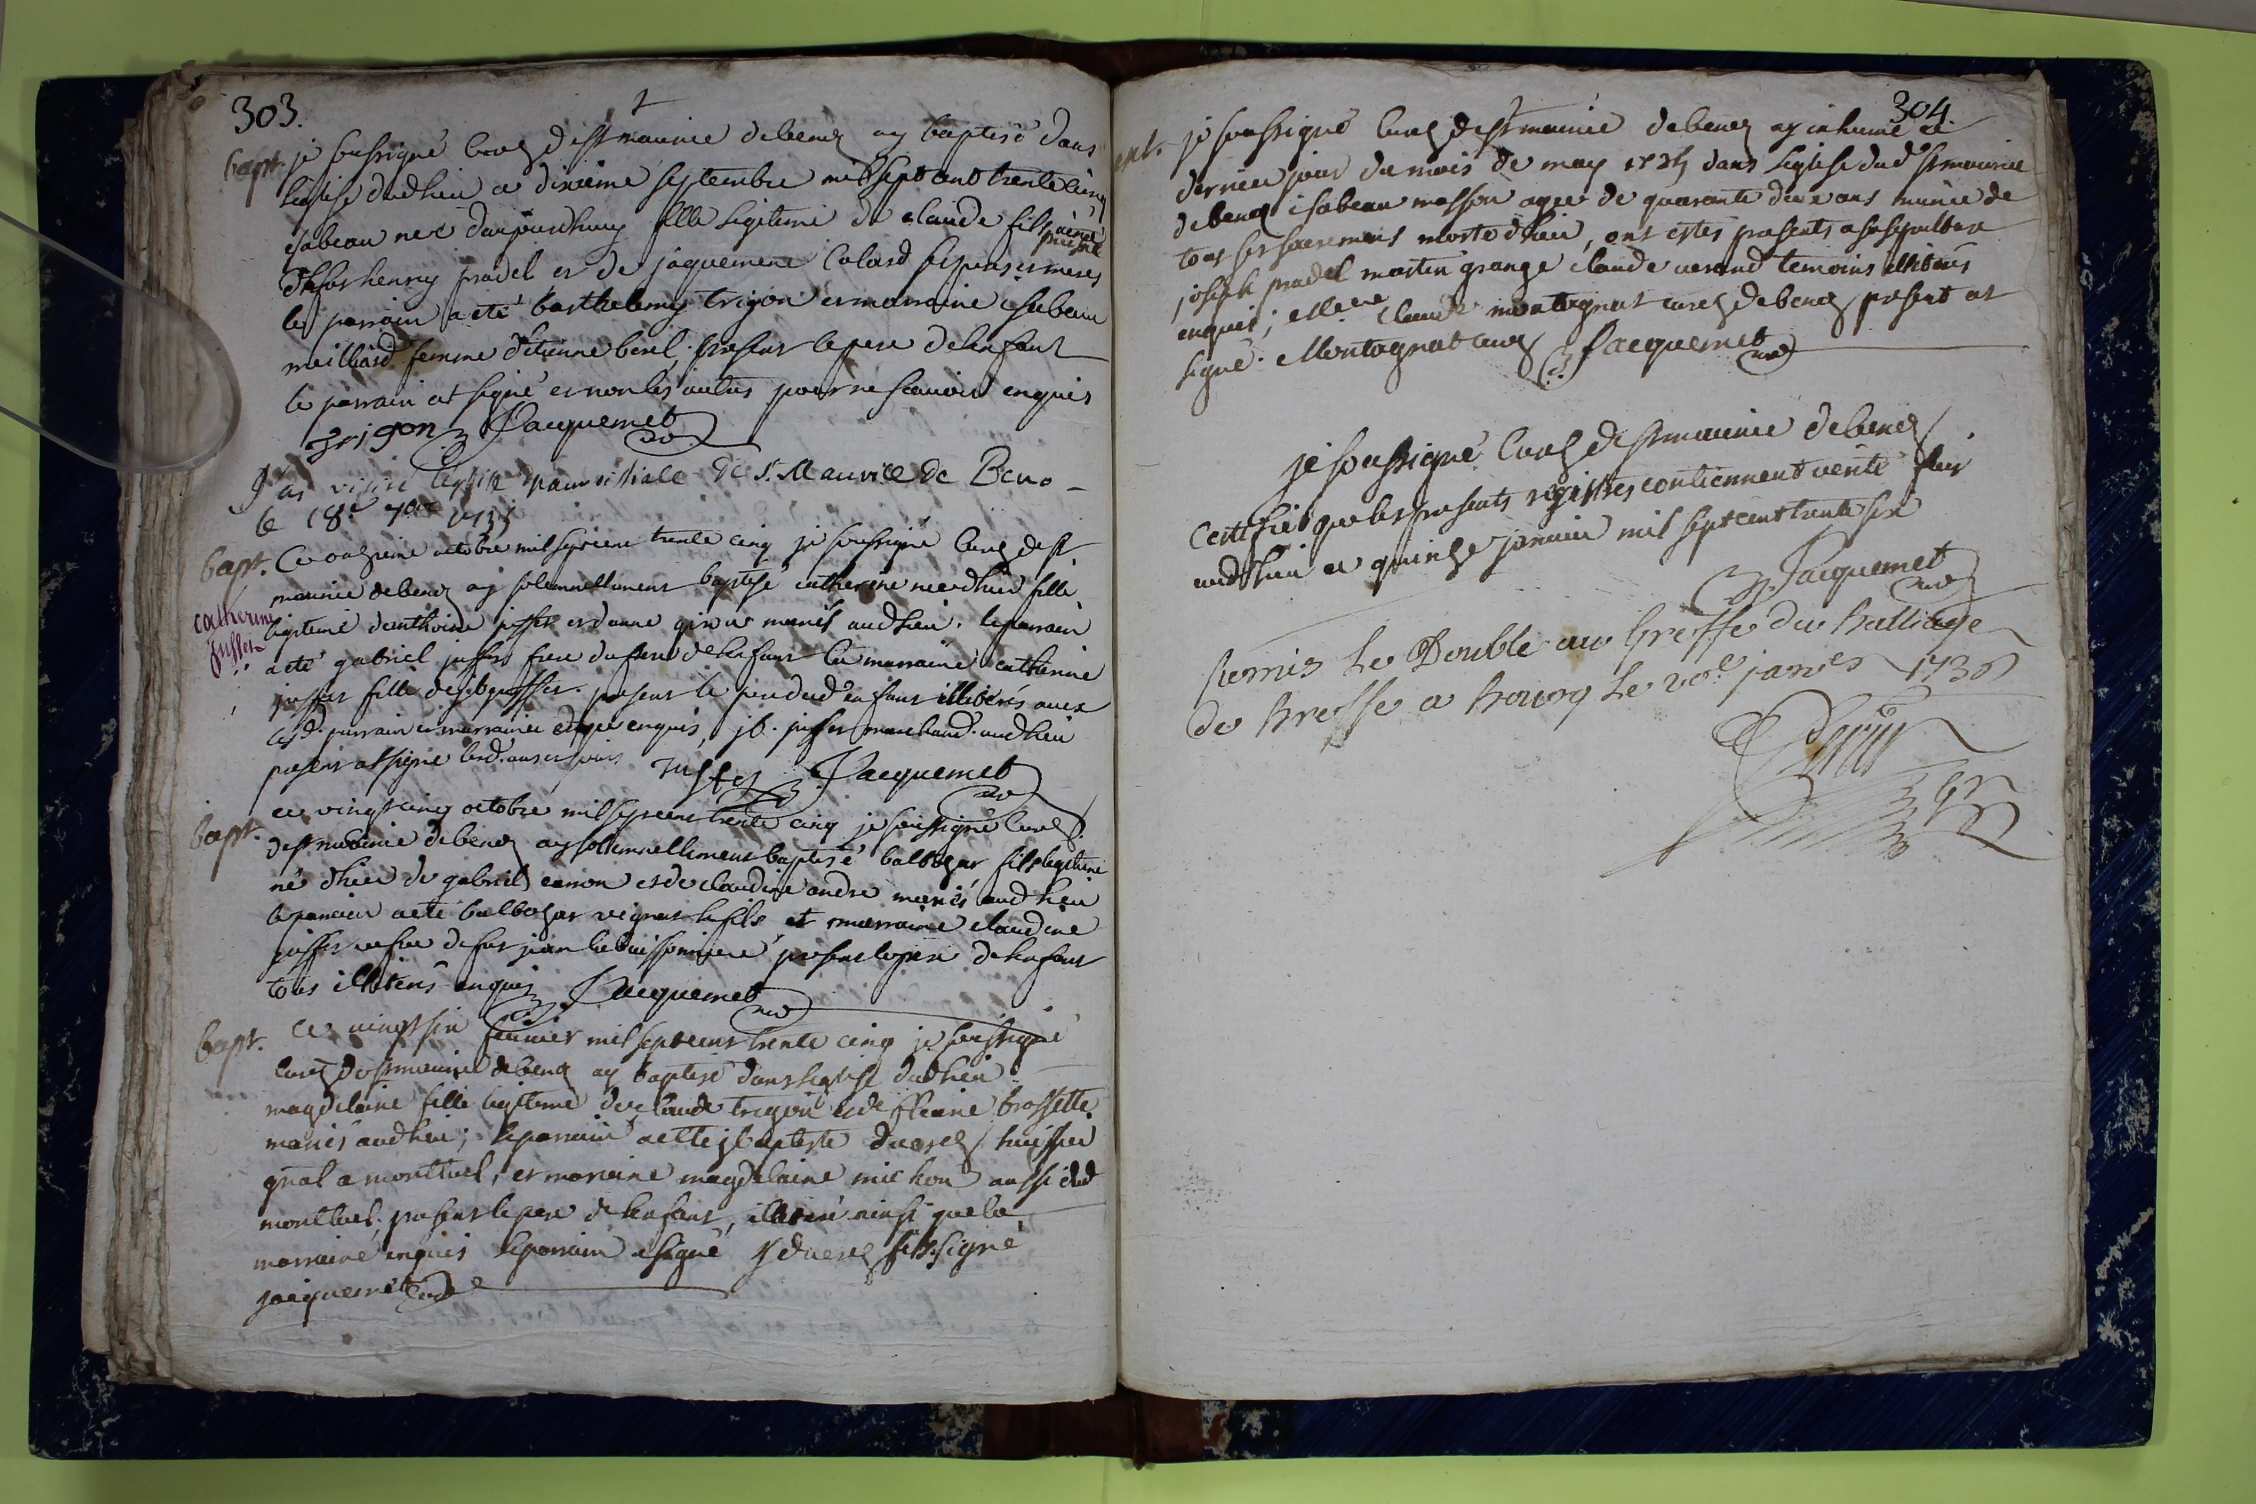 303.
bapt. je soussigné curé de st maurice debenoz ay baptisé dans
leglise dudlieu ce dixieme septembre mil sept cent trente cinq
isabeau neé daujourdhuy fille legitime de claude fils ainé
puisné
defeu henry pradel et de jaquemene Colard ses pere et mere
le parrain a eté barthelemy trigon et marraine isabeau
meilliard femme d'etienne borel, present le pere delenfant
le parrain at signé et non les autres pour ne scavoir enquis
Trigon Jacquemet curé
J'ai visité leglise parroissiale de St. Maurice de Beno
le 18e 7bre 1735
bapt. Ce onzieme octobre mil sept cent trente cinq je soussigné curé de st
maurice debenoz ay solemnellement baptisé catherine neé dhier fille
catherine
jusset
legitime danthoine josset et danne giroud mariés audlieu. le parrain
a eté gabriel josset frere du pere delenfant la marraine catherine
josset fille de josset. present le pere dudenfant illiterés avec
lesd. parrain et marraine enquis, jb. josset marchand audlieu
present at signé
Jusset Jacquemet curé
bapt. ce vingt cinq octobre mil sept cent trente cinq je soussigné curé
de st maurice debenoz ay solemnellement baptisé baltazar fils legitime
né dhier de gabriel canon et de claudine andre mariés audlieu
le parrain a eté baltazar vegnat le fils et marraine claudine
josset vefve de feu jean present le pere delenfant
tous illiterés enquis Jacquemet curé
bapt. ce vingt six fevrier mil sept cent trente cinq je soussigné
curé de st maurice debenoz ay baptisé dans leglise dudlieu
magdelaine fille legitime de claude trigon et de pierrine brossette
mariés audlieu; le parrain a etté jbaptiste ducrez huissier
gnal a montluel, et marraine magdelaine michon aussi dud
montluel. present le pere delenfant, illiteré ainsi que la
marraine enquis le parrain a signé J ducrez fils signé
jacquemet curé
304.
ent. je soussigné curé de st maurice debenoz ay inhumé ce
dernier jour du mois de may 1735 dans leglise dud st maurice
debenoz isabeau masson agee de quarante deux ans munie de
tous ses sacremens morte dhier, ont estés presents a sa sepulture
joseph pradel martin grange claude verand temoins illiterés
enquis; claude montagnat curé debenoz present at
signé. Montagnat curé Jacquemet curé
je soussigné curé de st maurice debenoz
certifie que les presents registres contiennent verité fait
audlieu ce quinze janvier mil sept cent trente six
Jacquemet curé
Remis le Double au Greffe du Balliage
de Bresse a Bourg le janver 1736